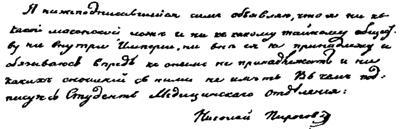 Я нижеподписавшійся симъ объявляю, что я ни къ
какой масонской ложѣ и ни къ какому тайному обществ
ву ни внутри Имперіи, ни внѣ ея не принадлежу и
обязываюсь впредь къ онымъ не принадлежать и ни
какихъ сношеній съ ними не имѣть. Въ чемъ под
писуюсь Студентъ Медицинскаго отдѣленія:
Николай Пироговъ